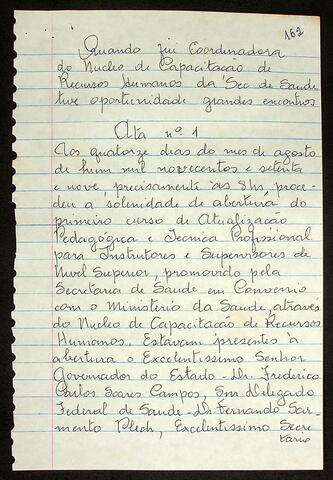 162
Quando fui Coordenadora
do Nucleo de Capacitacão de
Recursos Humanos da Sec de Saude
tive oportunidade grandes encontros
Ata nº 1
Aos quatorze dias do mes de agosto
de hum mil novecentos e setenta
e nove, precisamente às 8hs, proce-
deu a solenidade de abertura do
primeiro curso de Atualização
Pedagógica e Tecnica Profissional
para Instrutores e Supervisores de
Nivel Superior, promovido pela
Secretaria de Saude em Convenio
com o Ministério da Saude, através
do Nucleo de Capacitacão de Recursos
Humanos. Estavam presentes à
abertura o Excelentissimo Senhor
Governador do Estado - Dr. Frederico
Carlos Soares Campos, Snr. Delegado
Federal de Saude - Dr. Fernando Sar-
mento, Excelentissimo Secre
tario